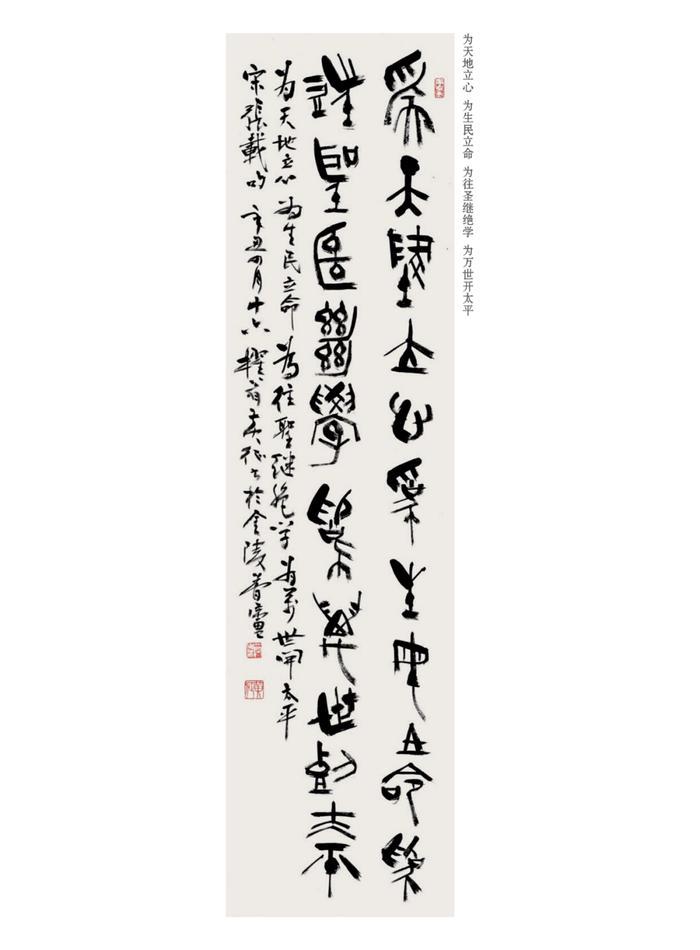 为天地立心 为生民立命 为往圣继绝学 为万世开太平
為天地立心為生民立命為
往聖繼絕學為萬世開太平
为天地立心为生民立命為往聖继绝学为萬世開太平
宋張載句 辛丑四月十六 黄征书於金陵